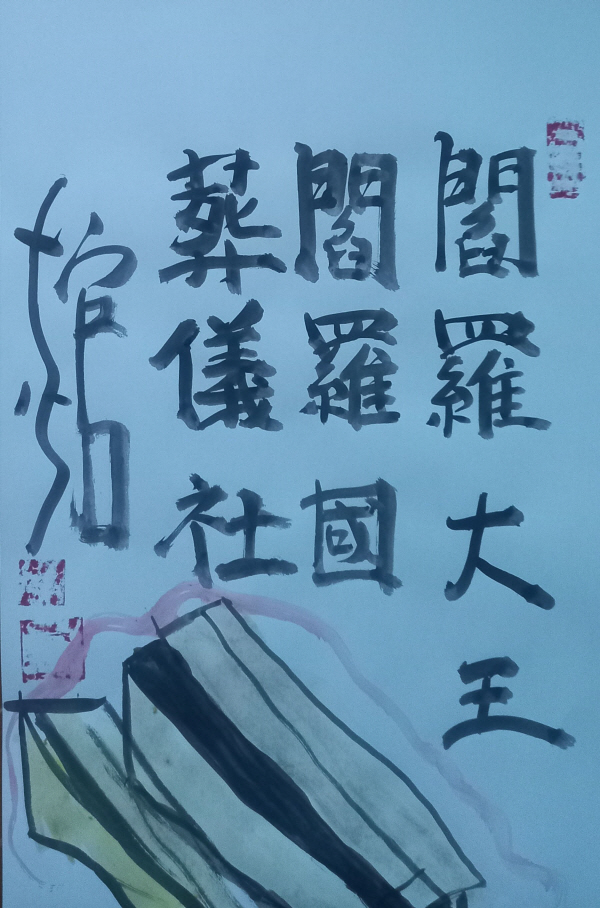 閻羅大王
閻羅國
葬儀社